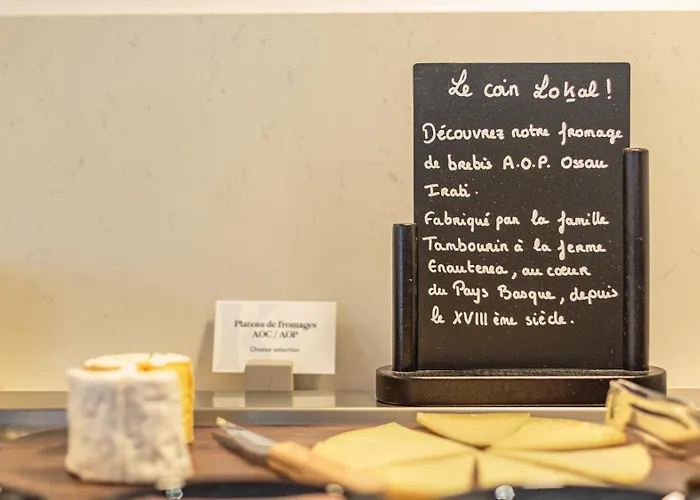 Le coin Lokal !
Découvrez notre fromage
de brebis A.O.P. Ossau
Irati.
Fabriqué par la famille
Tambourin à la ferme
Enautenea, au cœur
du Pays Basque, depuis
le XVIII ème siècle.
Plateau de fromages
AOC / AOP
Cheese selection